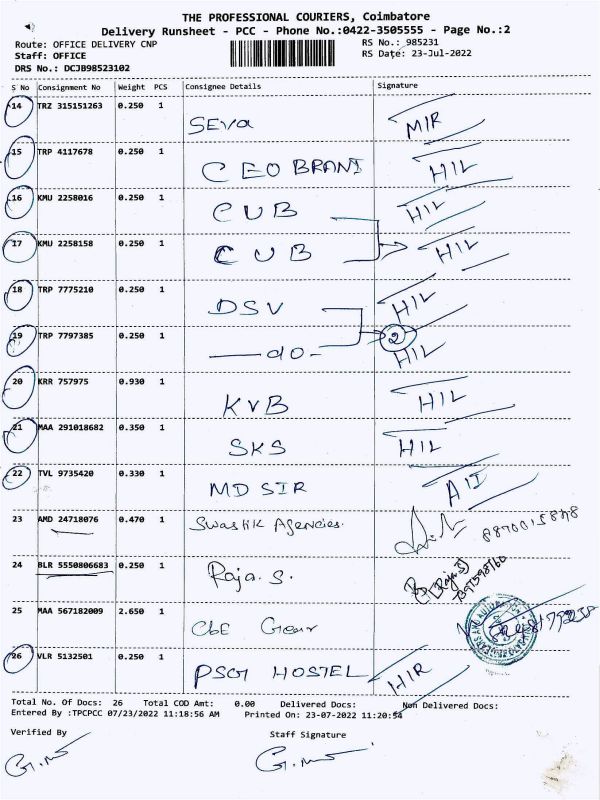 THE PROFESSIONAL COURIERS, Coimbatore
Delivery Runsheet - PCC - Phone No.:0422-3505555 - Page No.:2
Route: OFFICE DELIVERY CNP RS No.: 985231
Staff: OFFICE RS Date: 23-Jul-2022
DRS No.: DCJB98523102
S No Consignment No Weight PCS Consignee Details Signature
14 TRZ 315151263 0.250 1 SEVA MIR
15 TRP 4117678 0.250 1 CEO BRANI HIL
16 KMU 2258016 0.250 1 CUB HIL
17 KMU 2258158 0.250 1 CUB HIL
18 TRP 7775210 0.250 1 DSV HIL
19 TRP 7797385 0.250 1 -do- 2 HIL
20 KRR 757975 0.930 1 KVB HIL
21 MAA 291018682 0.350 1 SKS HIL
22 TVL 9735420 0.330 1 MD SIR AII
23 AMD 24718076 0.470 1 Swastik Agencies.
24 BLR 5550806683 0.250 1 Raja. S.
25 MAA 567182009 2.650 1 CbE Gear
26 VLR 5132501 0.250 1 PSG HOSTEL HIR
Total No. Of Docs: 26 Total COD Amt: 0.00 Delivered Docs: Non Delivered Docs:
Entered By :TPCPCC 07/23/2022 11:18:56 AM Printed On: 23-07-2022 11:20:54
Verified By Staff Signature